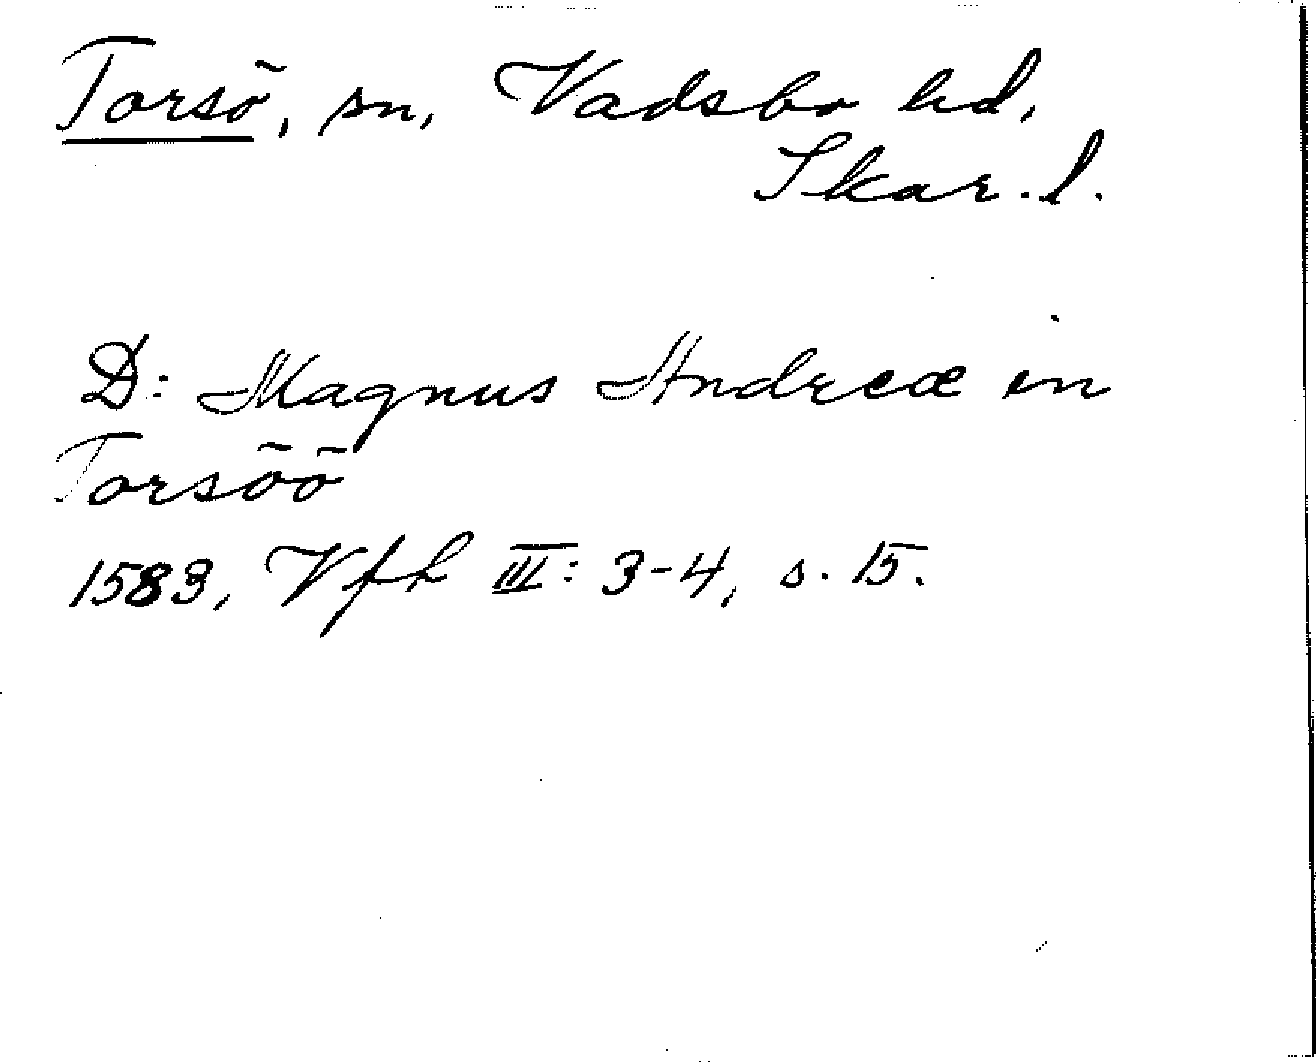 Torsö, sn, Vadsbo hd,
Skar. l.
D: Magnus Andreæ in
Torsöö
1583, Vfh III: 3-4, s. 15.